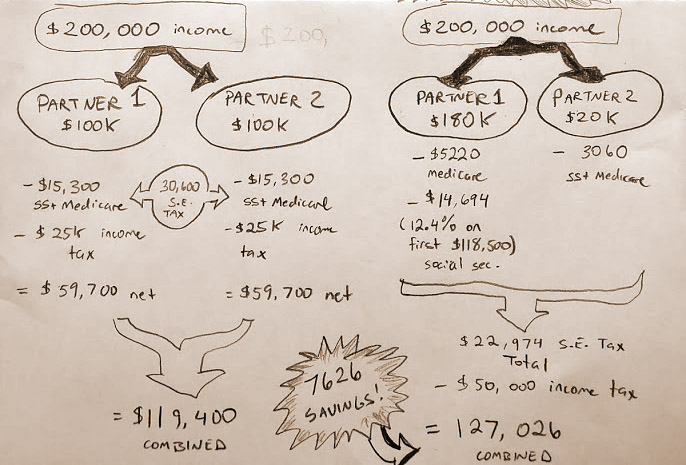 $200,000 income
$200,
PARTNER 1
$100K
PARTNER 2
$100K
- $15,300
SS+ Medicare
30,600
S.E.
TAX
- $15,300
SS+ Medicare
- $25K income
tax
- $25K income
tax
= $59,700 net
= $59,700 net
= $119,400
COMBINED
7626
SAVINGS!
$200,000 income
PARTNER 1
$180K
PARTNER 2
$20K
- $5220
medicare
- 3060
SS+ Medicare
- $14,694
(12.4% on
first $118,500)
social sec.
$22,974 S.E. Tax
Total
- $50,000 income tax
= 127,026
COMBINED